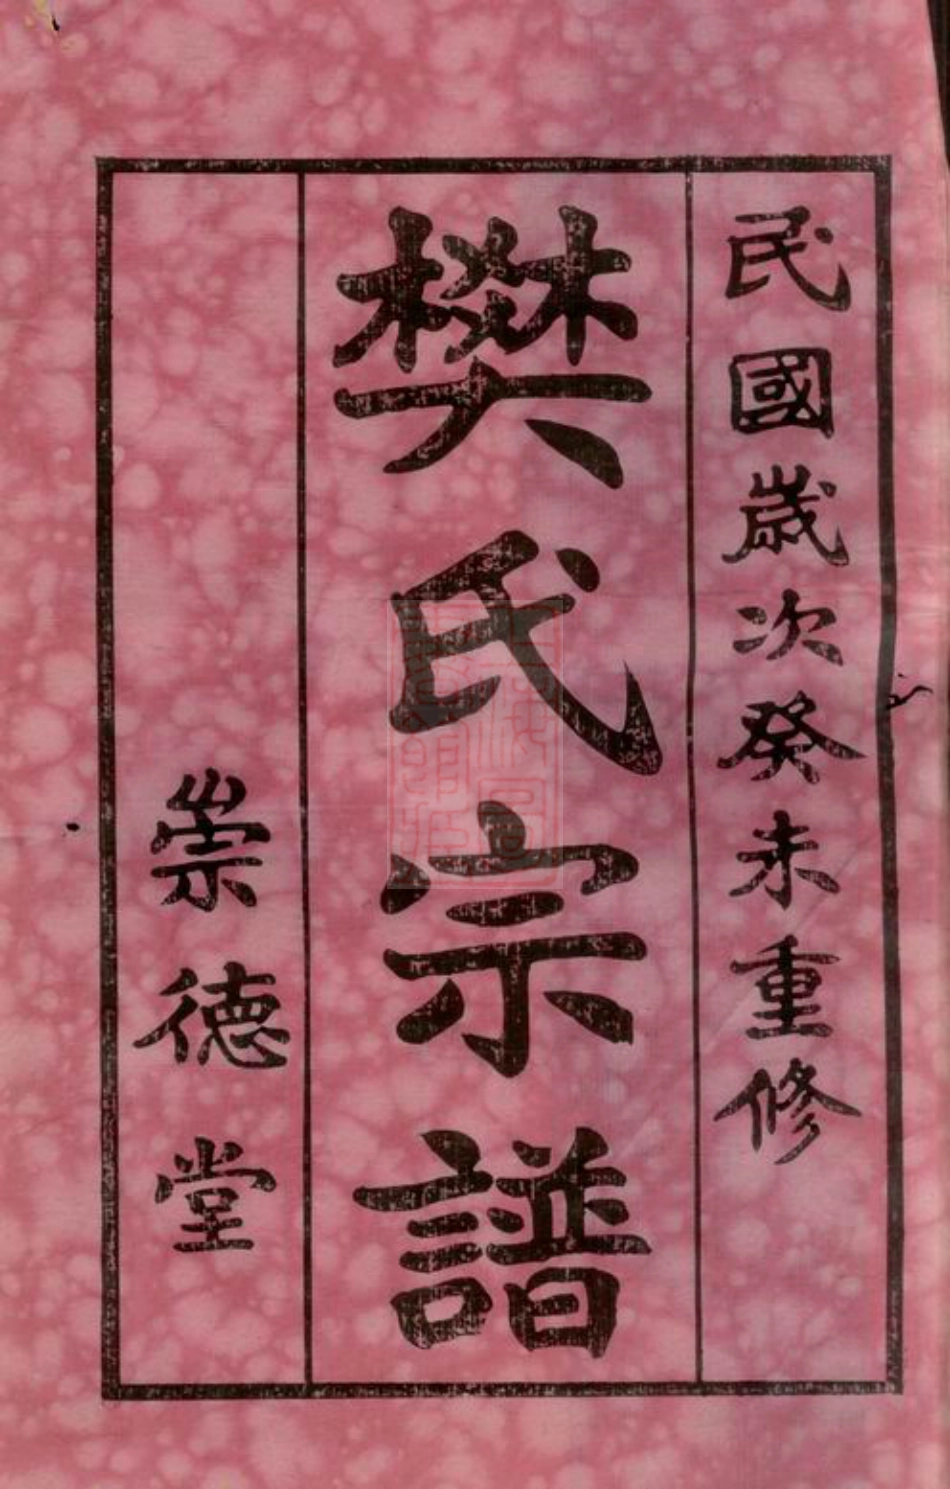 民國歲次癸未重修
樊氏宗譜
崇德堂